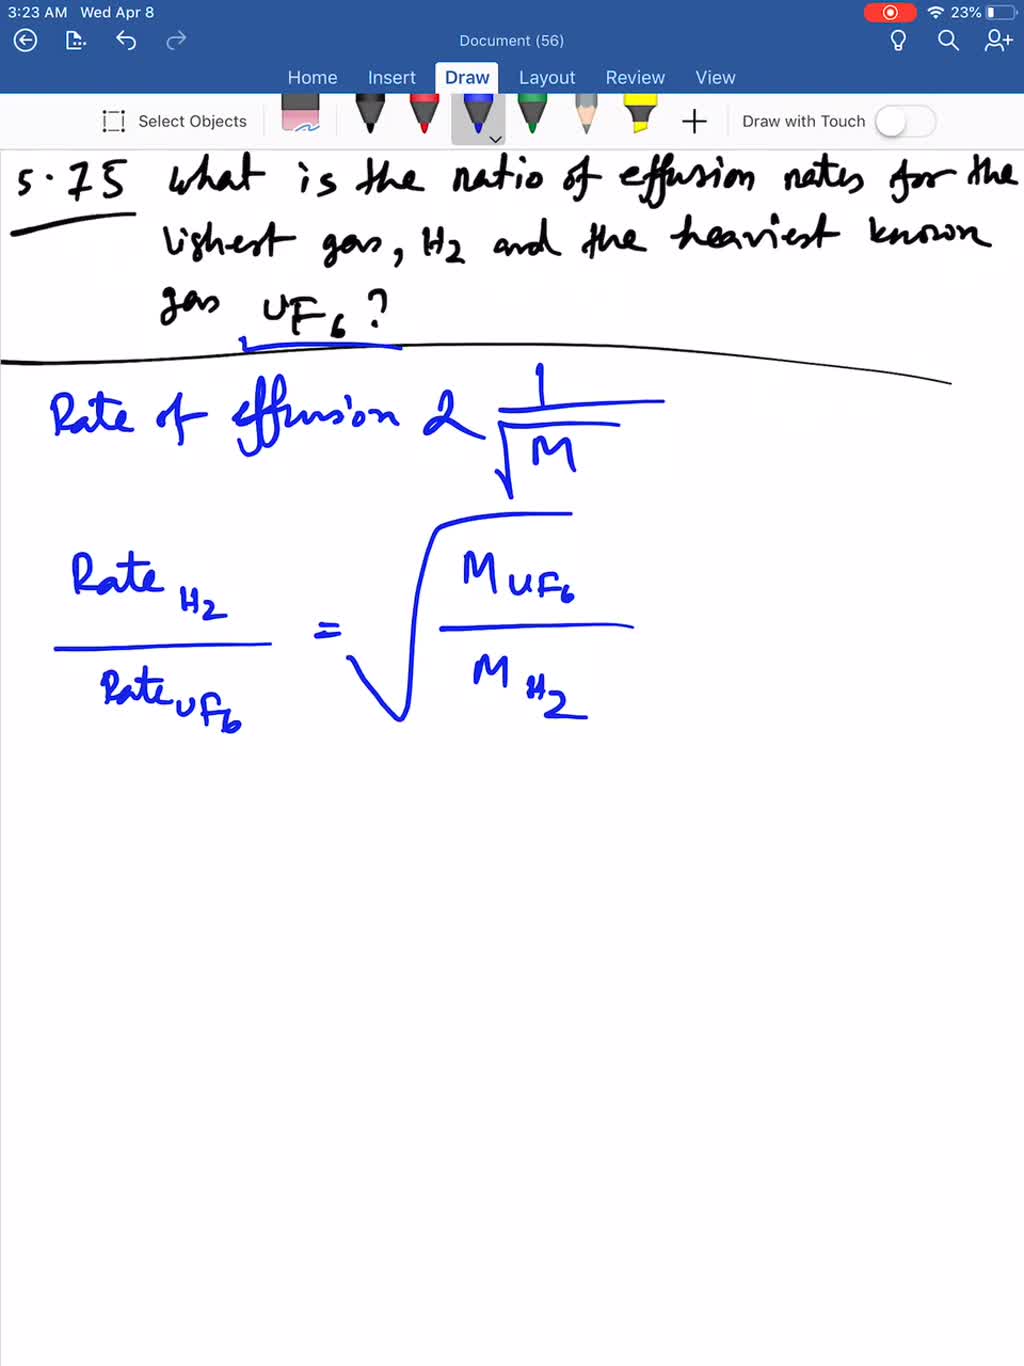 3:23 AM Wed Apr 8 23%
Document (56)
Home Insert Draw Layout Review View
Select Objects Draw with Touch
5.75 What is the ratio of effusion rates for the
lighest gas, H2 and the heaviest known
gas UF6?
Rate of effusion α 1
√M
Rate H2 = √ M UF6
Rate UF6 M H2